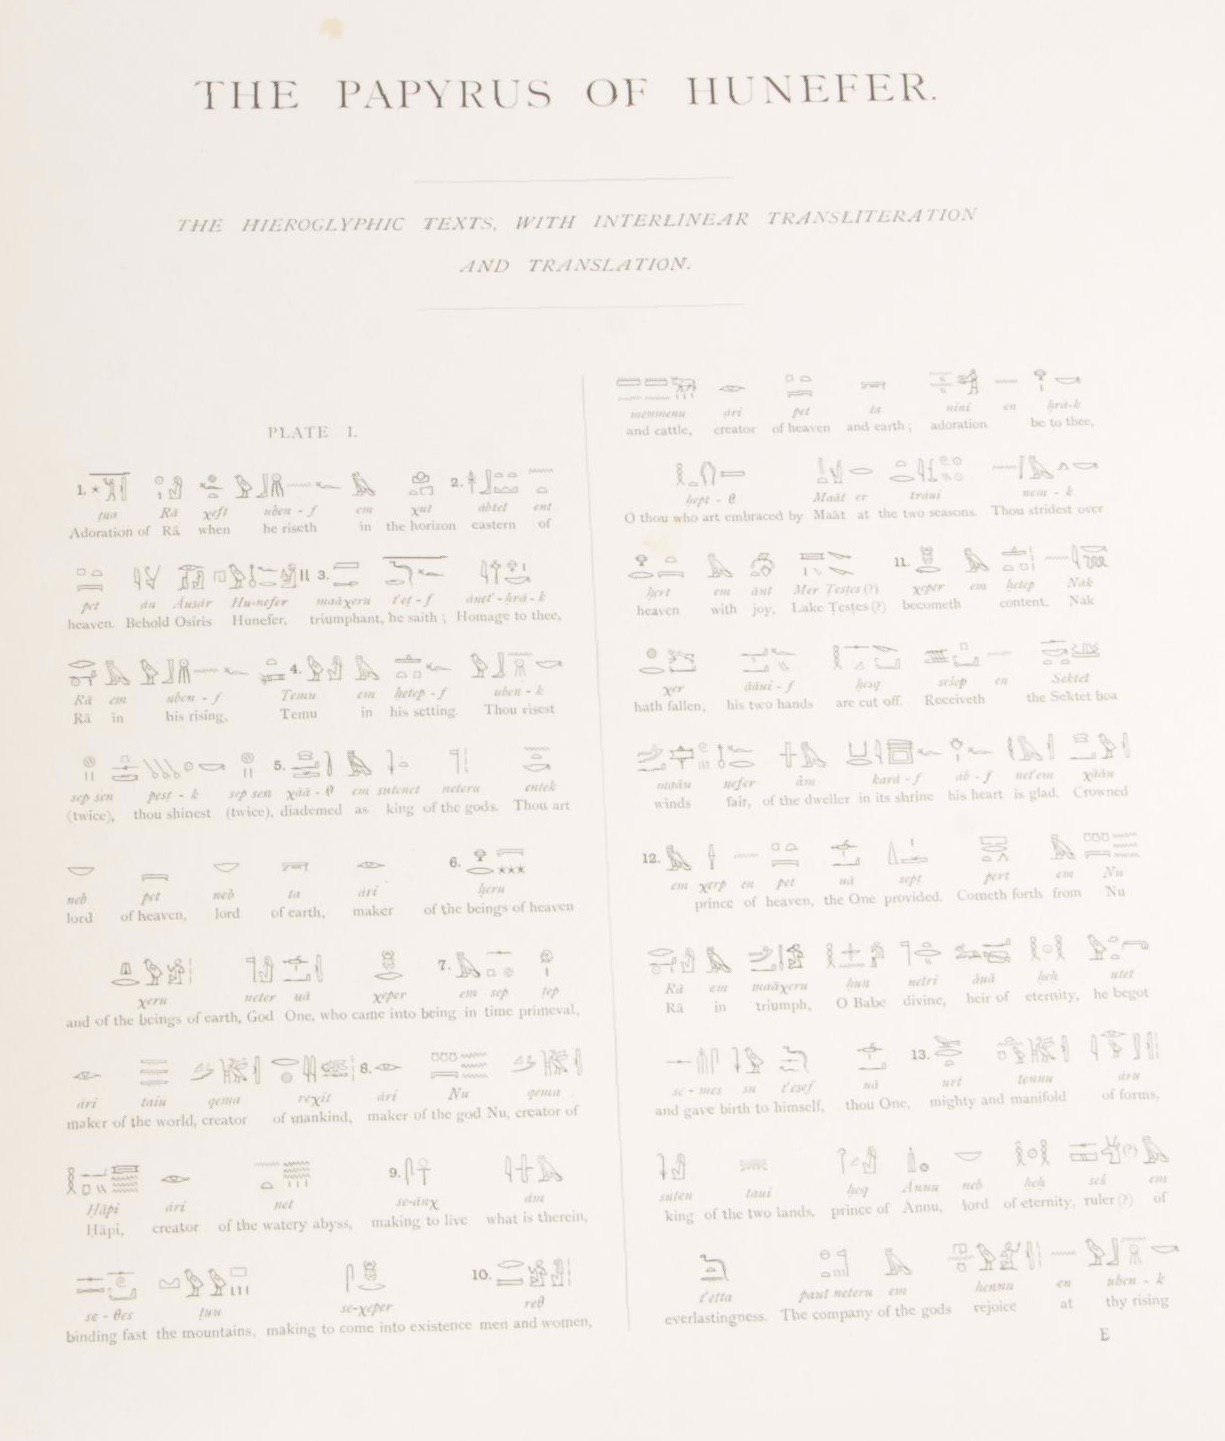 THE PAPYRUS OF HUNEFER.
THE HIEROGLYPHIC TEXTS, WITH INTERLINEAR TRANSLITERATION
AND TRANSLATION.
PLATE I.
1. 2.
ṭua Rā χeft uben - f em χut ȧbtet ent
Adoration of Rā when he riseth in the horizon eastern of
3.
pet ȧu Ȧusȧr Hu-nefer maāχeru t'eṭ - f ȧnet' - ḥrȧ - k
heaven. Behold Osiris Hunefer, triumphant, he saith; Homage to thee,
4.
Rā em uben - f Temu em ḥetep - f uben - k
Rā in his rising, Temu in his setting. Thou risest
5.
sep sen pest - k sep sen χāā - θ em sutenet neteru entek
(twice), thou shinest (twice), diademed as king of the gods. Thou art
6.
neb pet neb ta ȧri ḥeru
lord of heaven, lord of earth, maker of the beings of heaven
7.
χeru neter uā χeper em sep tep
and of the beings of earth, God One, who came into being in time primeval,
8.
ȧri taiu qema reχit ȧri Nu qema
maker of the world, creator of mankind, maker of the god Nu, creator of
9.
Ḥāpi ȧri net se-ānχ ȧm
Ḥāpi, creator of the watery abyss, making to live what is therein,
10.
se - θes ṭuu se-χeper reθ
binding fast the mountains, making to come into existence men and women,
menmenu ȧri pet ta nini en ḥrȧ-k
and cattle, creator of heaven and earth; adoration be to thee,
ḥept - θ Maāt er trȧui nem - k
O thou who art embraced by Maāt at the two seasons. Thou stridest over
11.
ḥert em ȧut Mer Ṭesṭes (?) χeper em ḥetep Nȧk
heaven with joy, Lake Ṭesṭes (?) becometh content, Nȧk
χer āāui - f ḥesq seśep en Sektet
hath fallen, his two hands are cut off. Receiveth the Sektet boa
maāu nefer ȧm karȧ - f ȧb - f net'em χāāu
winds fair, of the dweller in its shrine his heart is glad. Crowned
12.
em χerp en pet uā sept pert em Nu
prince of heaven, the One provided. Cometh forth from Nu
Rā em maāχeru ḥun netri āuā ḥeḥ utet
Rā in triumph, O Babe divine, heir of eternity, he begot
13.
se - mes su t'esef uā urt tennu ȧru
and gave birth to himself, thou One, mighty and manifold of forms,
suten taui ḥeq Ȧnnu neb ḥeḥ (?) em
king of the two lands, prince of Ȧnnu, lord of eternity, ruler (?) of
t'etta paut neteru em hennu en uben - k
everlastingness. The company of the gods rejoice at thy rising
E